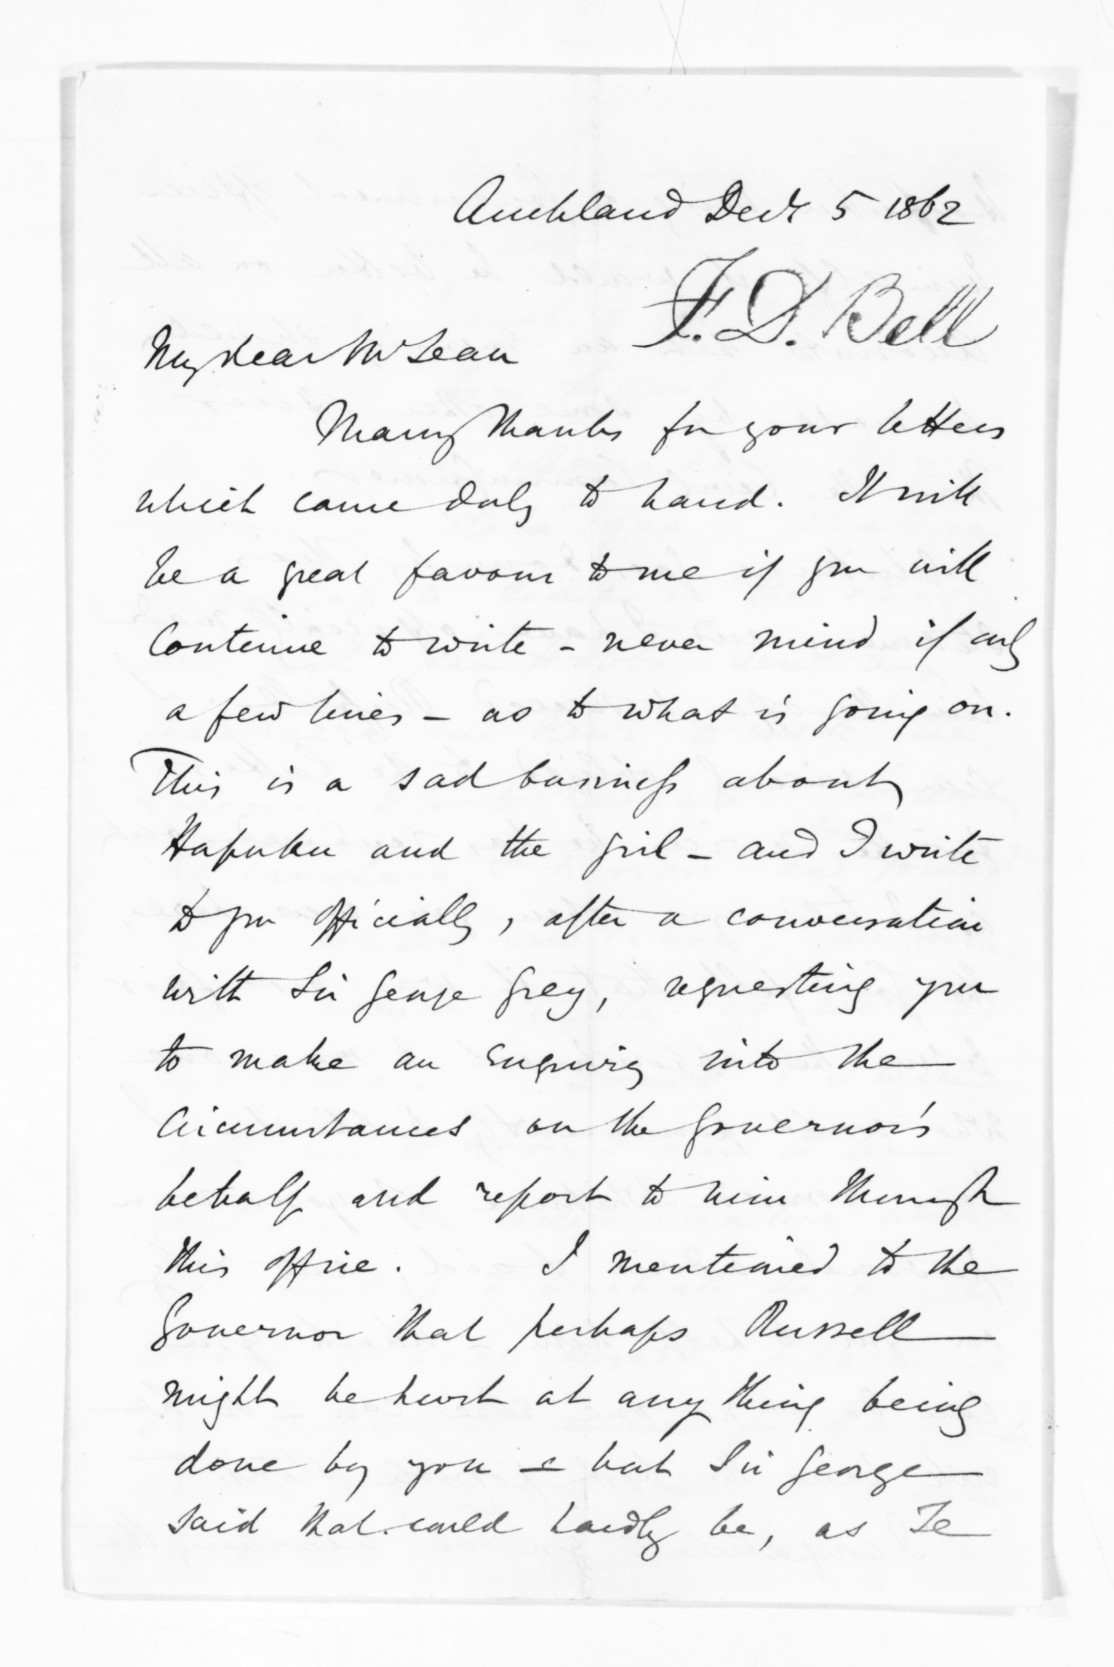 Auckland Decr 5 1862
F. D. Bell
My dear McLean
Many thanks for your letters
which came duly to hand. It will
be a great favour to me if you will
continue to write - never mind if only
a few lines - as to what is going on.
This is a sad business about
Hapuku and the girl - and I write
to you officially, after a conversation
with Sir George Grey, requesting you
to make an enquiry into the
circumstances on the Governor's
behalf and report to him through
this office. I mentioned to the
Governor that perhaps Russell
might be hurt at any thing being
done by you - but Sir George
said that could hardly be, as Te